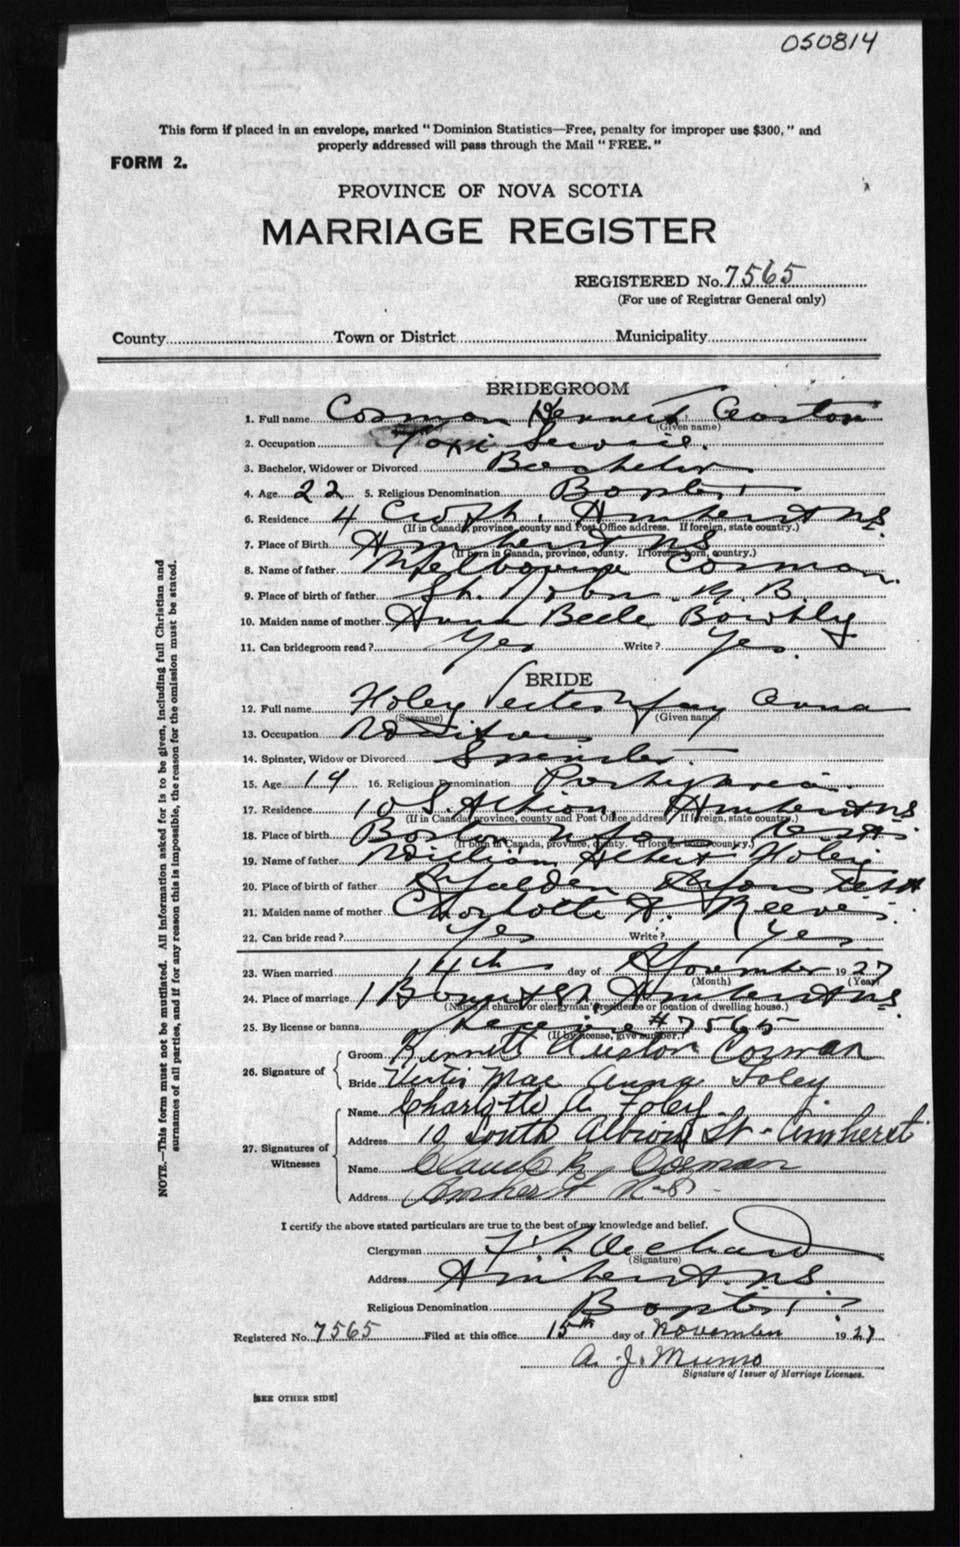 050814
This form if placed in an envelope, marked "Dominion Statistics—Free, penalty for improper use $300," and
properly addressed will pass through the Mail "FREE."
FORM 2.
PROVINCE OF NOVA SCOTIA
MARRIAGE REGISTER
REGISTERED No. 7565
(For use of Registrar General only)
County Town or District Municipality
BRIDEGROOM
1. Full name Cosman Kennett
(Given name)
2. Occupation Taxi Service.
3. Bachelor, Widower or Divorced Bachelor
4. Age 22 5. Religious Denomination Baptist
6. Residence 4 Amherst NS
(If in Canada, province, county and Post Office address. If foreign, state country.)
7. Place of Birth Amherst NS
(If born in Canada, province, county. If foreign born, country.)
8. Name of father Melbourne Cosman
9. Place of birth of father St. John N. B.
10. Maiden name of mother Anna Belle Bowlby
11. Can bridegroom read? Yes Write? Yes.
BRIDE
12. Full name Foley May Anna
(Surname) (Given name)
13. Occupation
14. Spinster, Widow or Divorced Spinster
15. Age 19 16. Religious Denomination
17. Residence 10 S. Albion Amherst NS
(If in Canada, province, county and Post Office address. If foreign, state country.)
18. Place of birth Boston
(If born in Canada, province, county. If foreign born, country.)
19. Name of father William Albert Foley
20. Place of birth of father Malden
21. Maiden name of mother Charlotte A. Reeves
22. Can bride read? Yes Write? Yes
23. When married 14th day of November 1927
(Month) (Year)
24. Place of marriage Amherst NS
(Name of church or clergyman's residence or location of dwelling house.)
25. By license or banns License #7565
(If by license, give number.)
26. Signature of
Groom Kennett Auston Cosman
Bride Vertis Mae Anna Foley
27. Signatures of Witnesses
Name Charlotte A. Foley
Address 10 South Albion St - Amherst
Name Claude R. Cosman
Address Amherst N.S.
I certify the above stated particulars are true to the best of my knowledge and belief.
Clergyman Orchard
(Signature)
Address Amherst NS
Religious Denomination Baptist
Registered No. 7565 Filed at this office 15th day of November 1927
A. J. Munro
Signature of Issuer of Marriage Licenses.
[SEE OTHER SIDE]
NOTE.—This form must not be mutilated. All information asked for is to be given, including full Christian and
surnames of all parties, and if for any reason this is impossible, the reason for the omission must be stated.